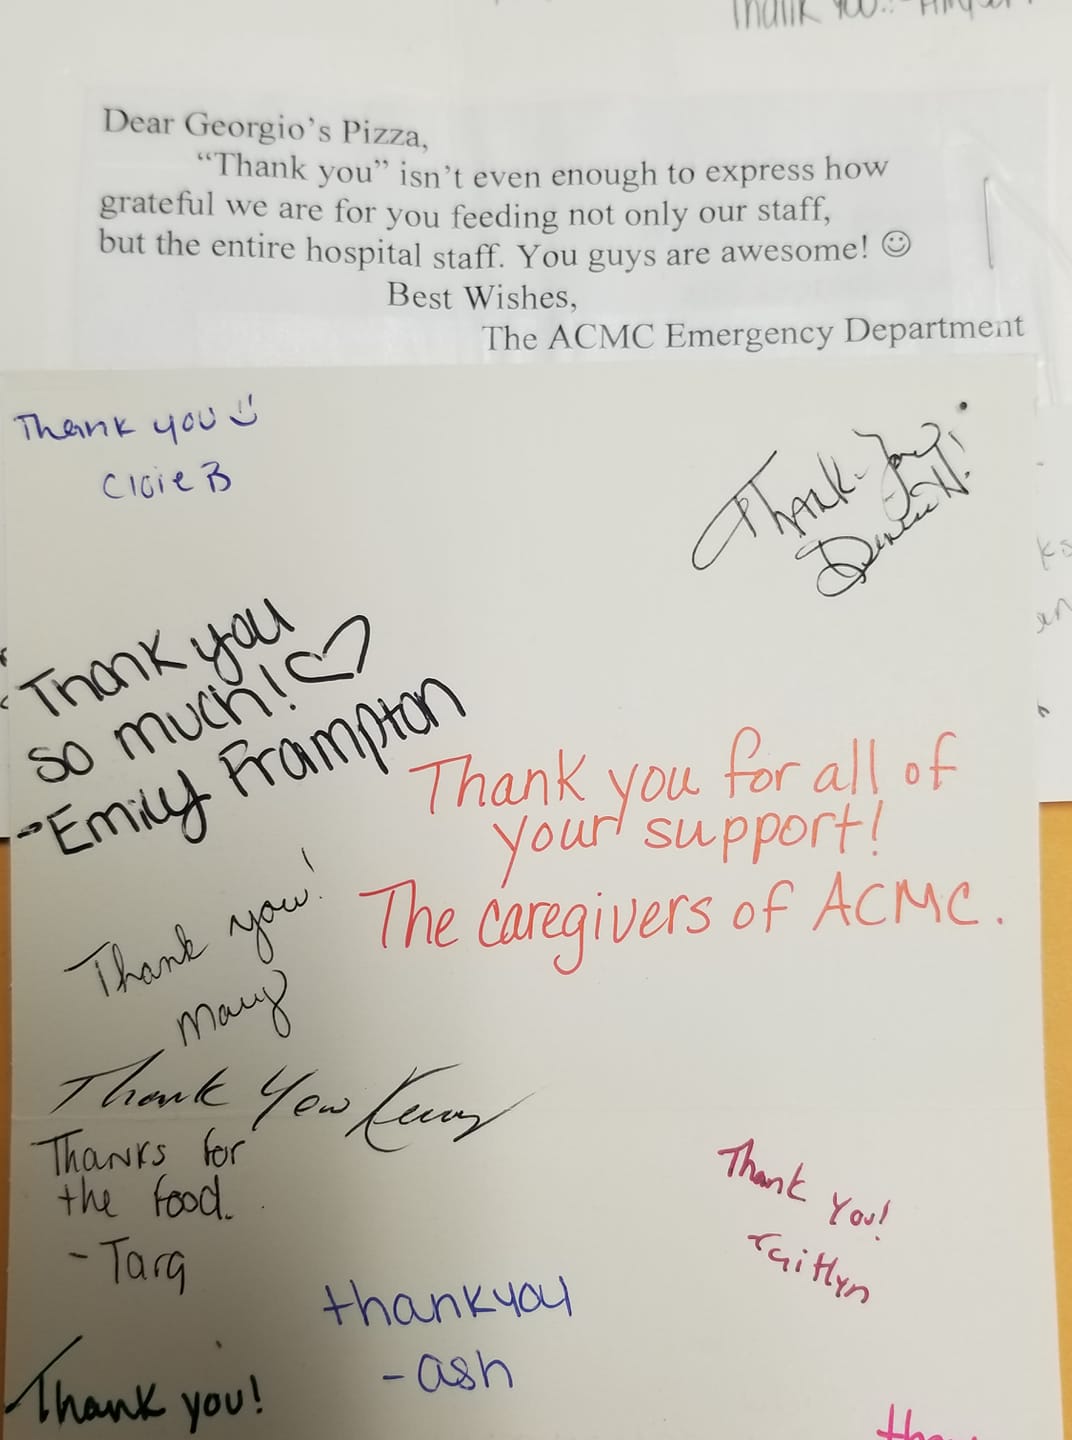 Thank you!!
Dear Georgio's Pizza,
"Thank you" isn't even enough to express how
grateful we are for you feeding not only our staff,
but the entire hospital staff. You guys are awesome! ☺
Best Wishes,
The ACMC Emergency Department
Thank you
Cloie B
Thank you!
Denise H
Thank you
so much! ♡
-Emily Frampton
Thank you for all of
your support!
The caregivers of ACMC.
Thank you!
Mary
Thank You
Thanks for
the food.
- Tara
Thank You!
Kaitlyn
thankyou
- ash
Thank you!